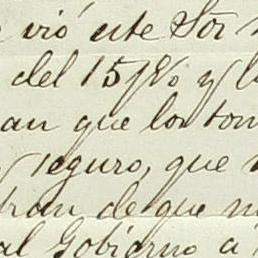 vió este Sor
del 15 % y l
an que los tom
seguro, que
tran de que n
al Gobierno á